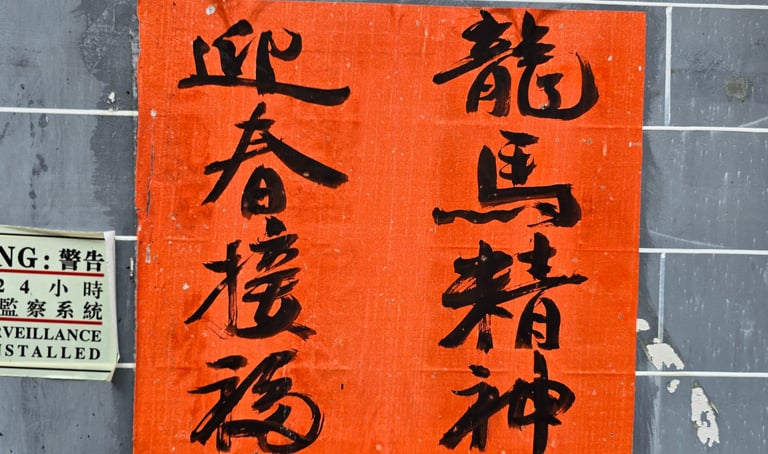 龍馬精神
迎春接福
NG:警告
24小時
監察系統
RVEILLANCE
NSTALLED